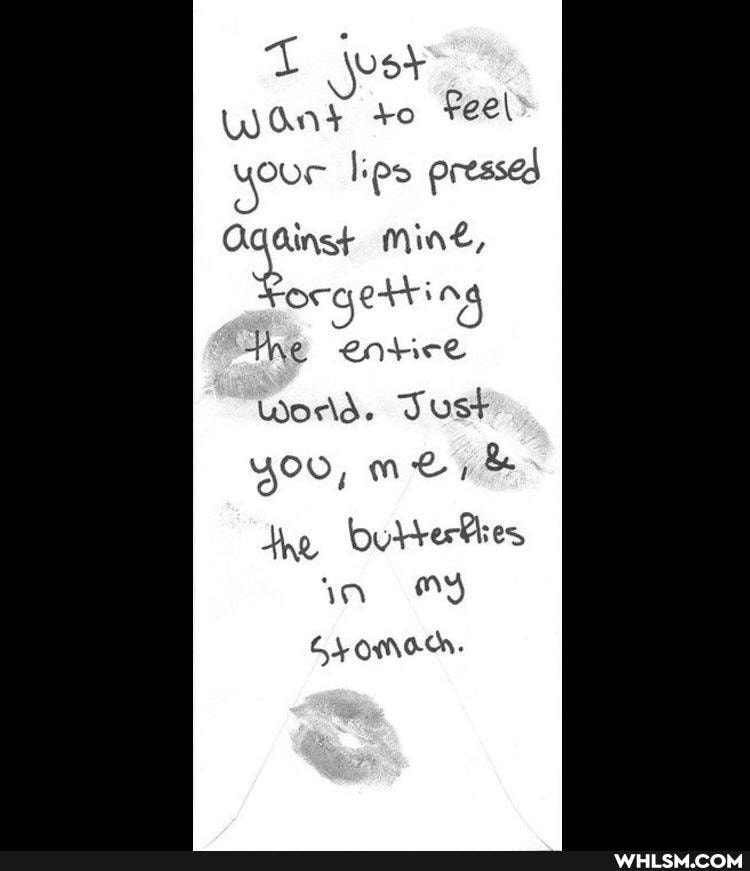 I just
want to feel
your lips pressed
against mine,
forgetting
the entire
world. Just
you, me, &
the butterflies
in my
stomach.
WHLSM.COM